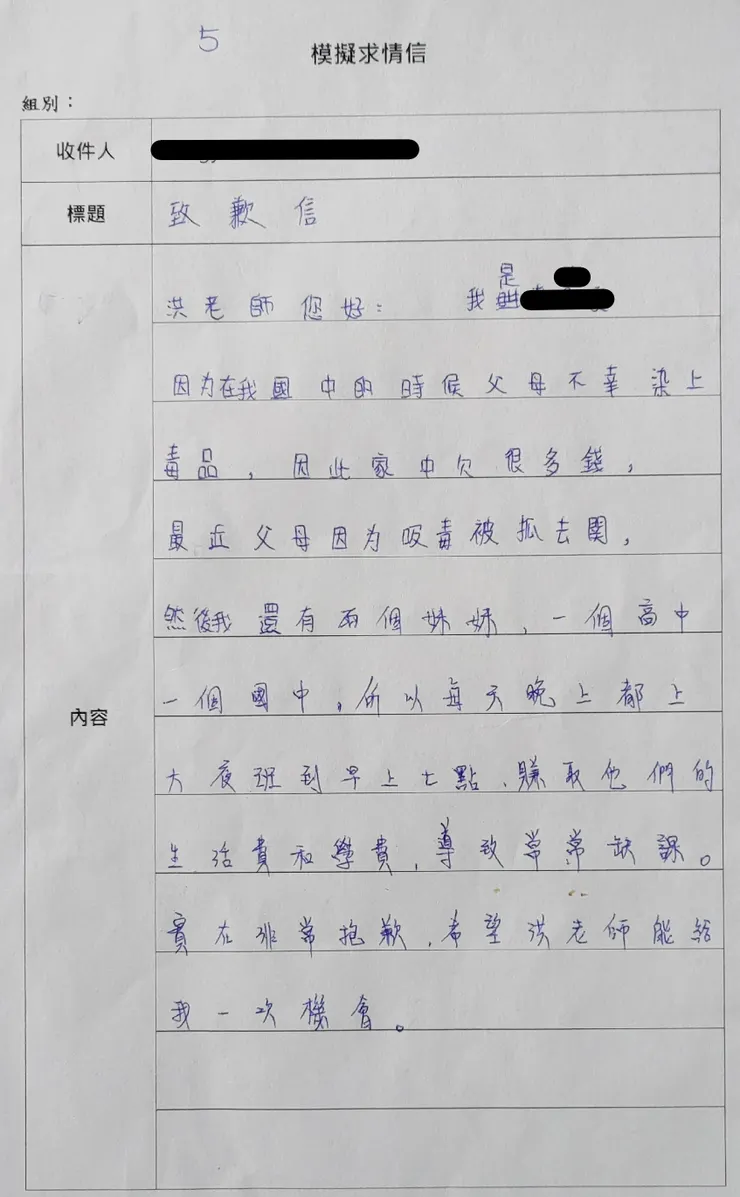 5
模擬求情信
組別：
收件人
標題 致歉信
內容
洪老師您好： 我是
因为在我國中的時候父母不幸染上
毒品，因此家中欠很多錢，
最近父母因为吸毒被抓去関，
然後我還有兩個妹妹，一個高中
一個國中，所以每天晚上都上
大夜班到早上七點，賺取他們的
生活費和學費，導致常常缺課。
實在非常抱歉，希望洪老師能給
我一次機會。